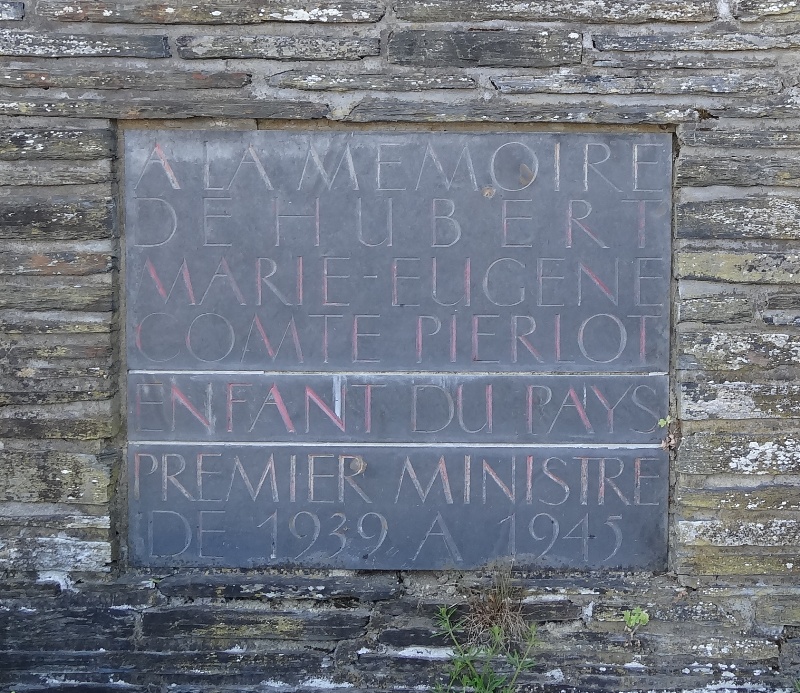 A LA MEMOIRE
DE HUBERT
MARIE-EUGENE
COMTE PIERLOT
ENFANT DU PAYS
PREMIER MINISTRE
DE 1939 A 1945